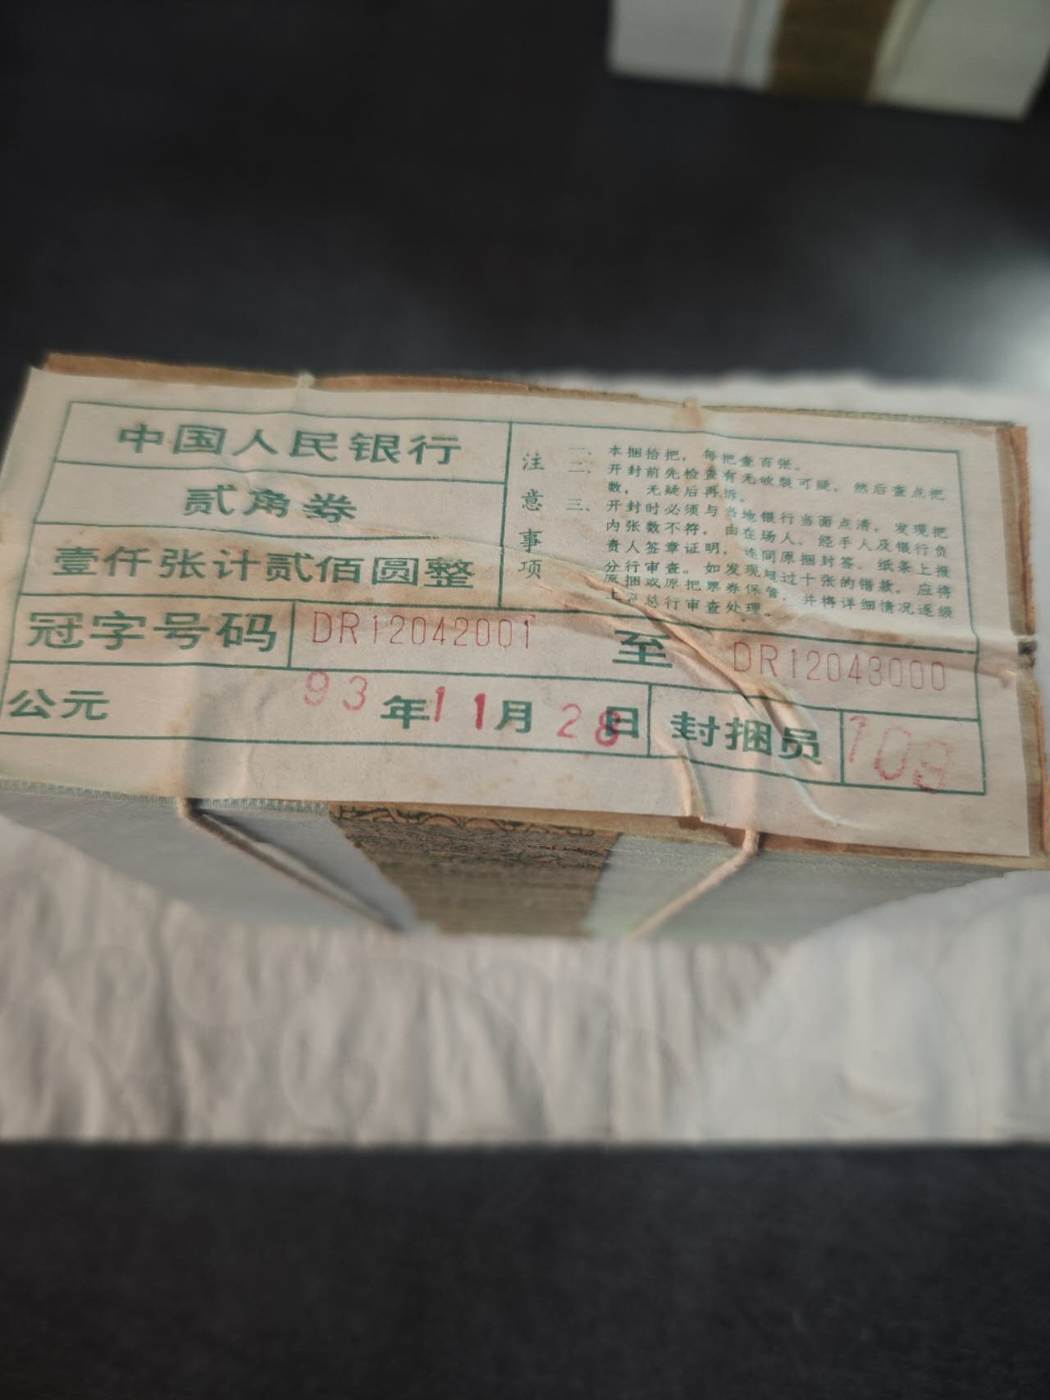 中国人民银行
贰角券
壹仟张计贰佰圆整
注意事项
一、本捆拾把，每把壹百张。
二、开封前先检查有无破裂可疑，然后查点把
数，无疑后再拆。
三、开封时必须与当地银行当面点清，发现把
内张数不符，由在场人、经手人及银行负
责人签章证明，连同原捆封签、纸条上报
分行审查。如发现超过十张的错款，应将
原捆或原把票券保管，并将详细情况逐级
上报总行审查处理。
冠字号码 DR12042001 至 DR12043000
公元 93年11月28日 封捆员 109